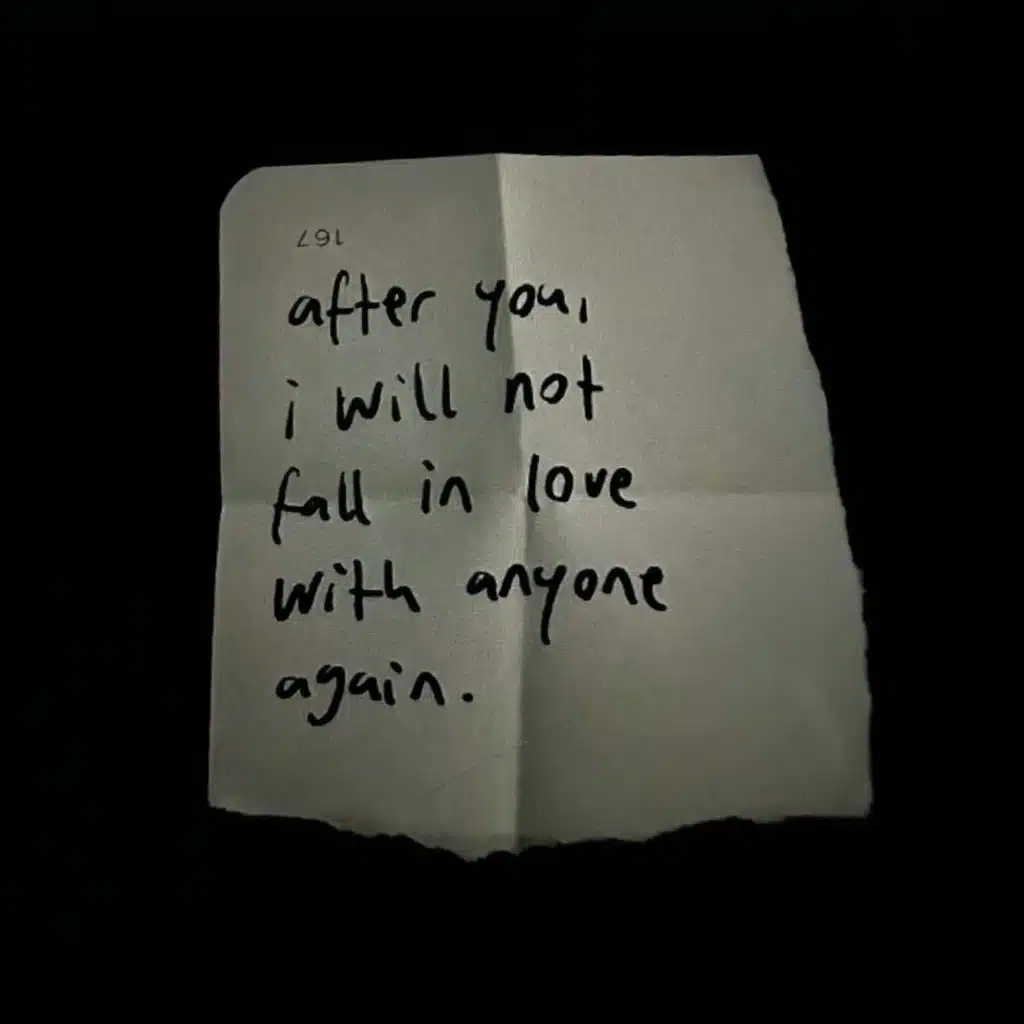 167
after you,
i will not
fall in love
with anyone
again.